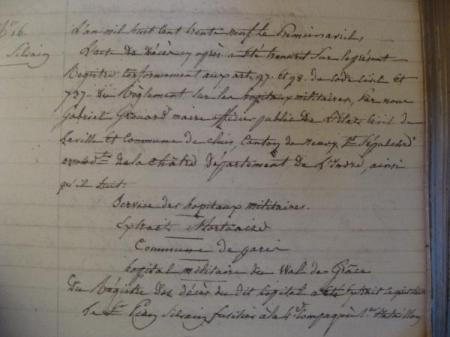 N° 16.
Silvain
L'an mil huit cent trente neuf le Premier avril,
L'acte de décès ci après a été transcrit sur le présent
Registre conformement aux art. 97. et 98. du Code Civil et
737. du Règlement sur les hopitaux militaires, par nous
Gabriel maire officier public de l'Etat Civil de
la ville et Commune de Cluis, Canton de Neuvy St. Sépulchre
arrondt. de la Châtre Département de L'Indre, ainsi
qu'il suit.
Service des hopitaux militaires.
Extrait Mortuaire
Commune de Paris
hopital militaire du Val-de-Grâce
Du Registre des décès du dit hopital a été extrait ce qui suit
Le Sr. Silvain fusilier à la 4e Compagnie 1er Bataillon